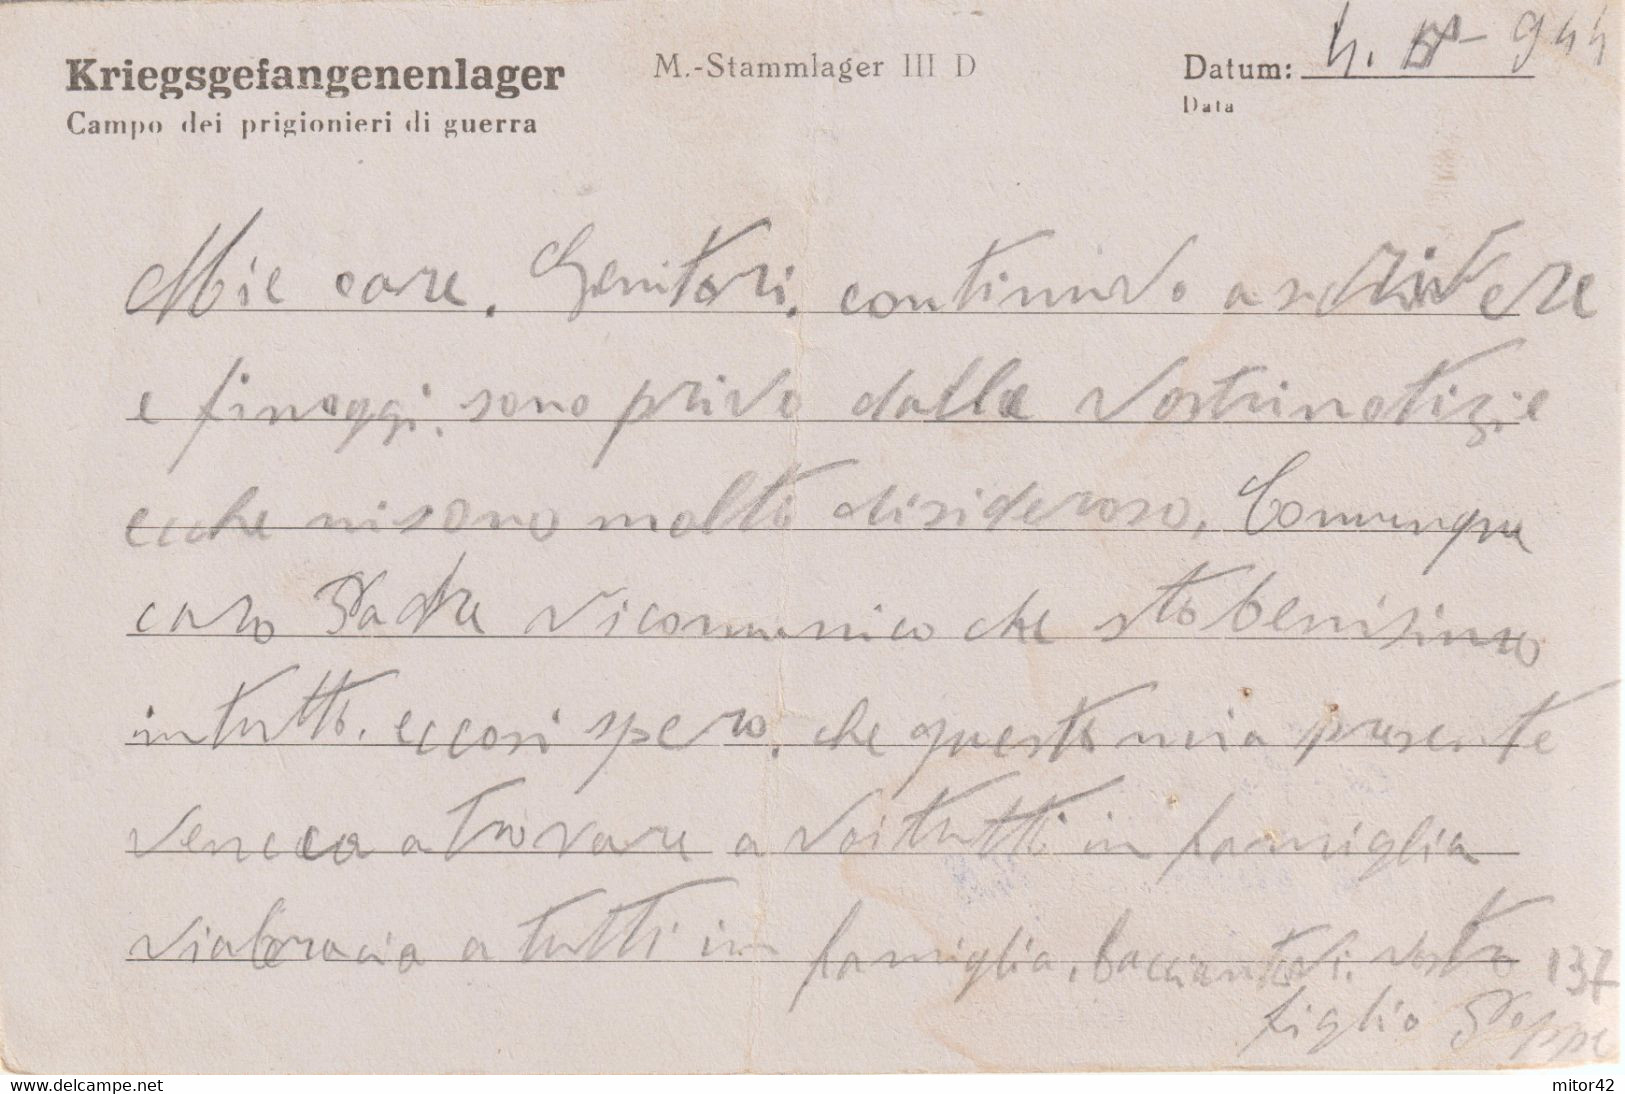 Kriegsgefangenenlager
Campo dei prigionieri di guerra
M.-Stammlager III D
Datum: 4. IV - 944
Data
Mie care. Genitori. continuvo a scrivere
e finoggi. sono privo dalle vostri notizie
ecche nisono molto disideroso, Comunque
caro Padre vicomunico che sto benisimo
in tutto. eccosi spero. che questo mia presente
venca a trovare a voi tutti in famiglia
viabracia a tutti in famiglia. bacciantovi. vostro
figlio Peppe
137
mitor42